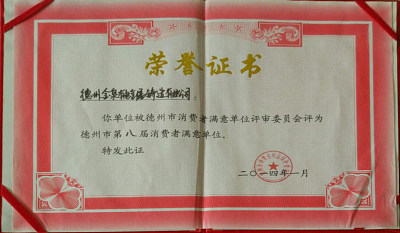 荣誉证书
德州金阜有色金属铸造有限公司:
你单位被德州市消费者满意单位评审委员会评为
德州市第八届消费者满意单位。
特发此证
二〇一四年一月